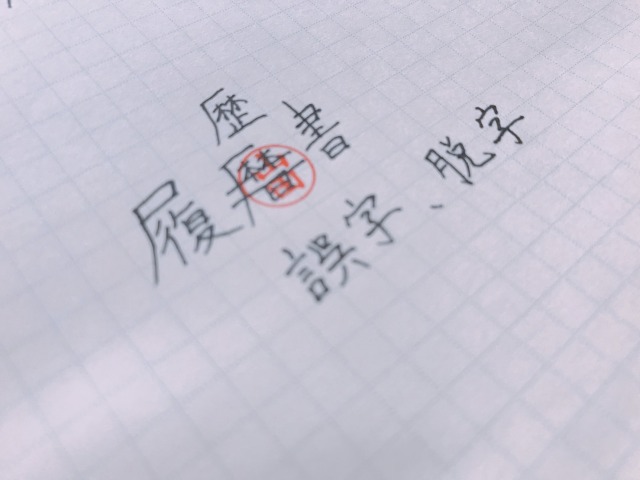 歴
履暦書
誤字、脱字